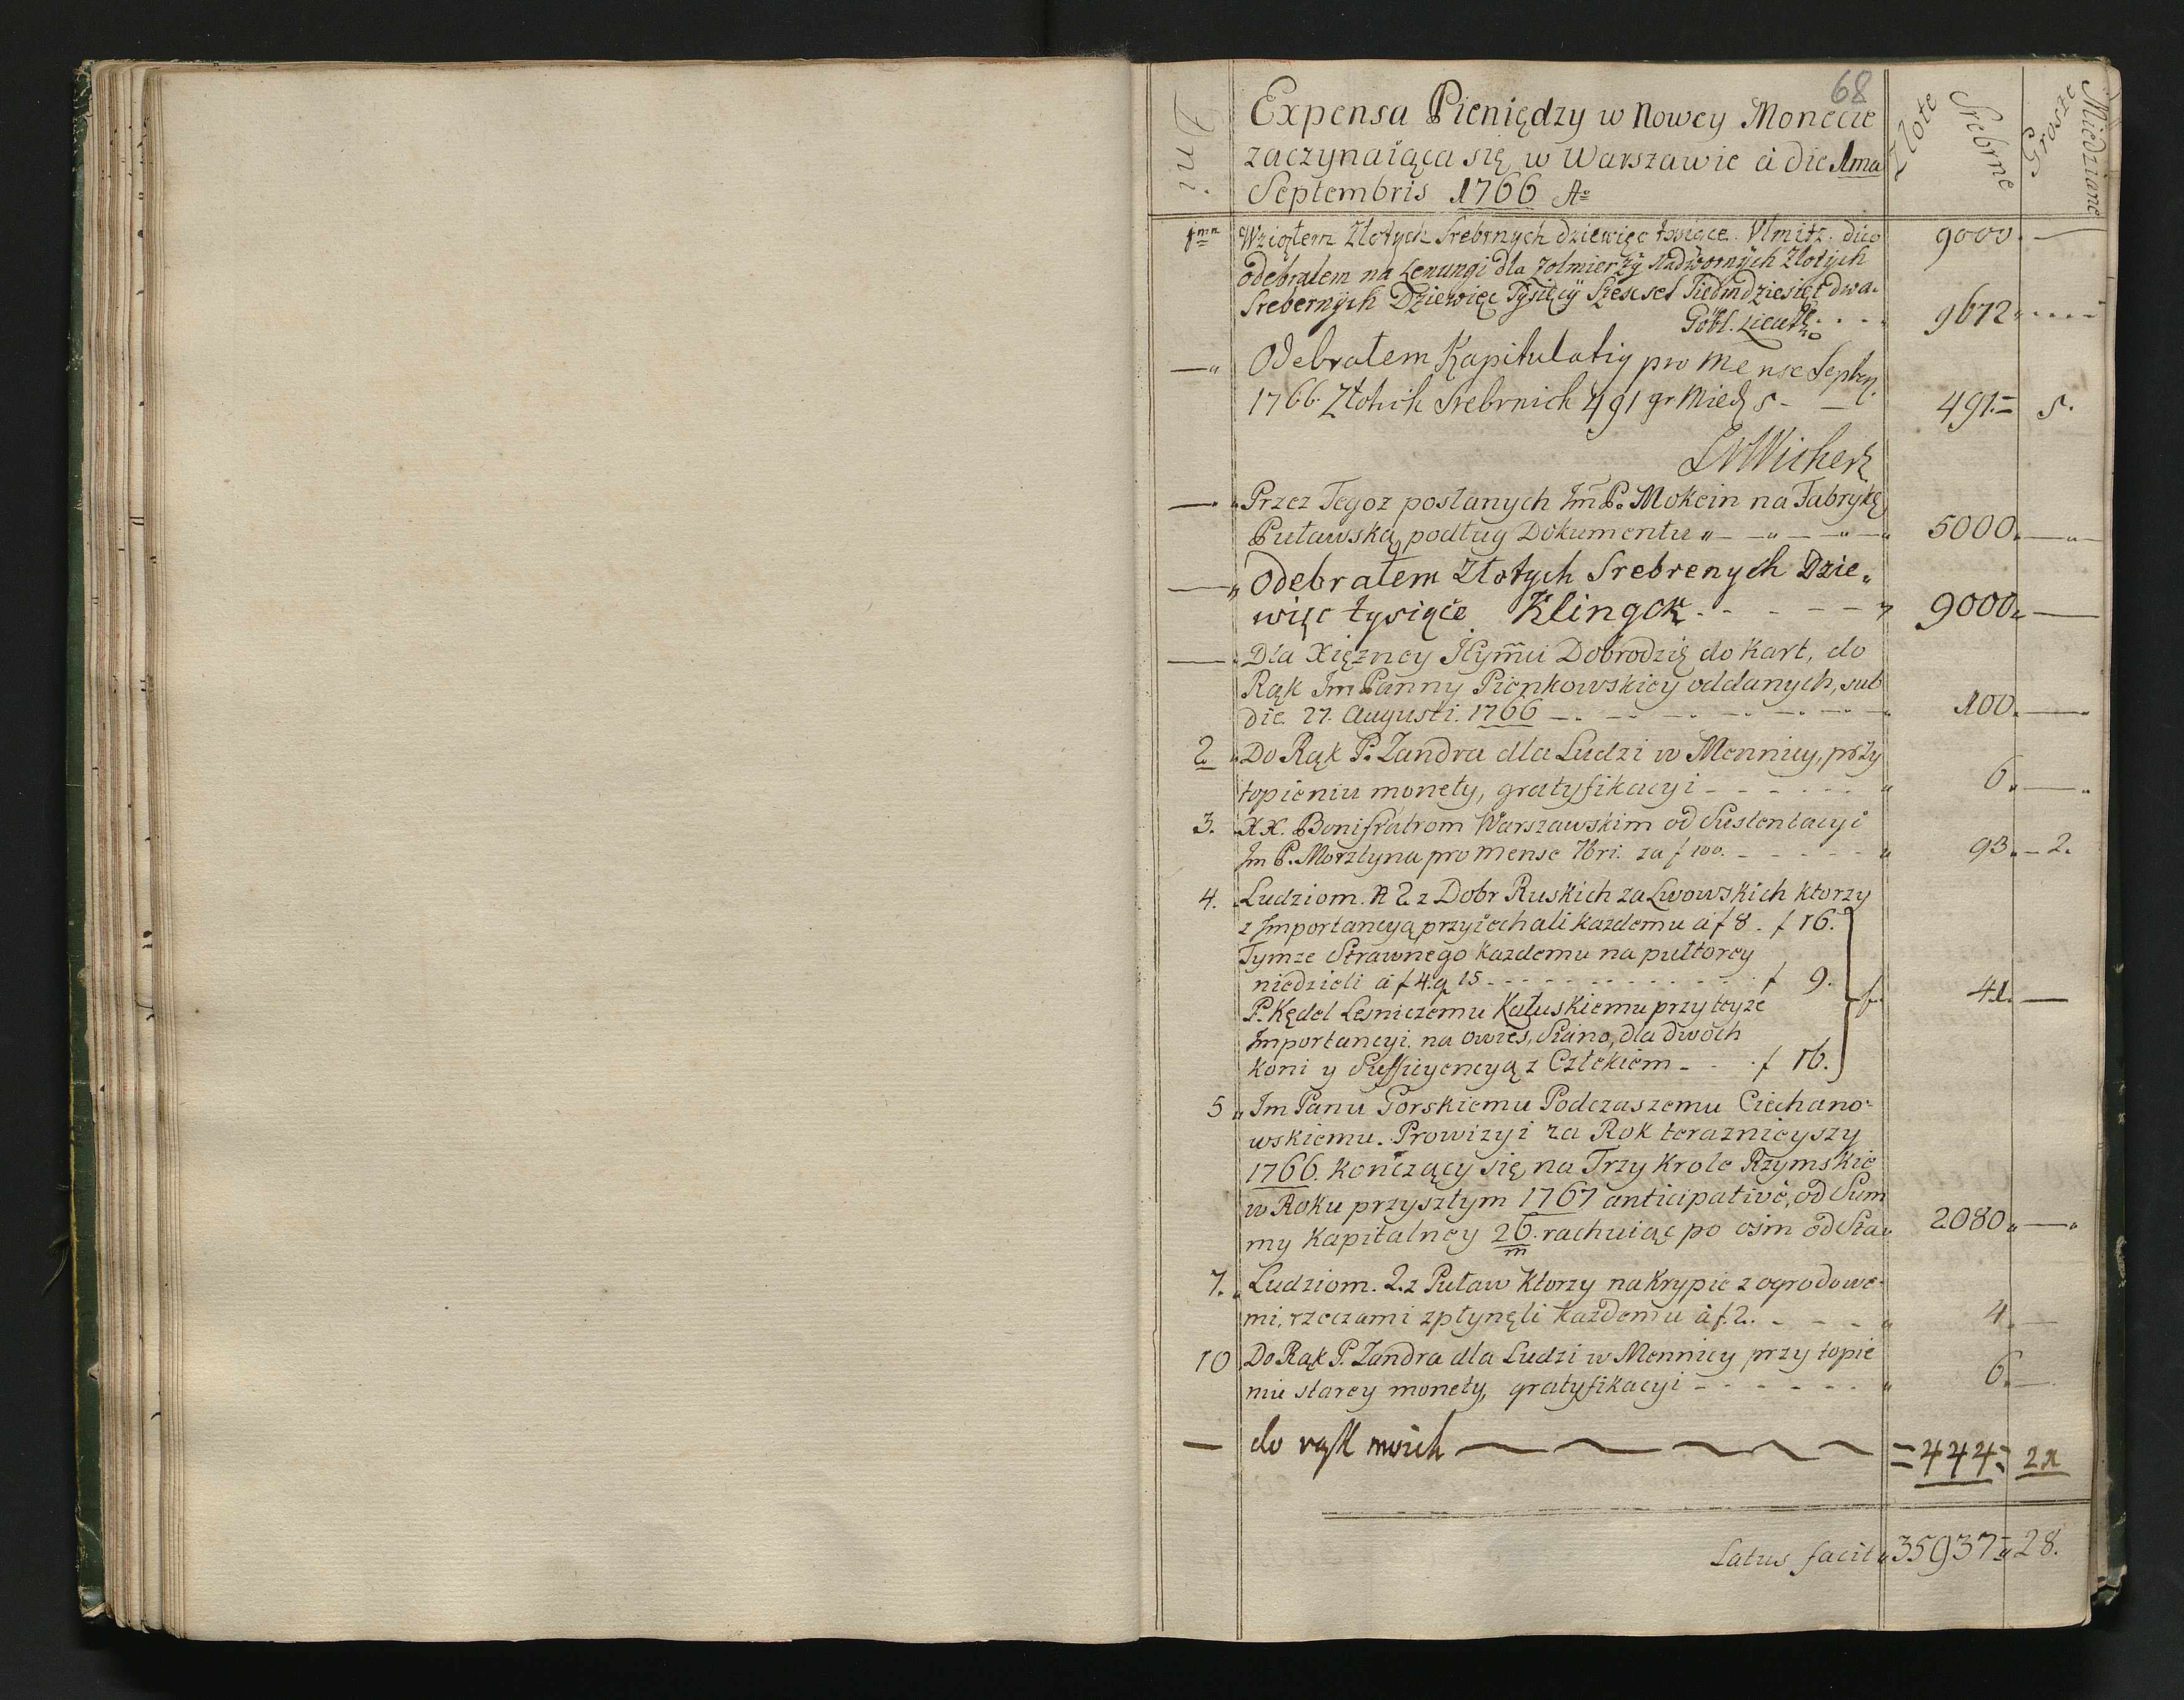 68
Dni
Expensa Pieniędzy w Nowey Monecie
zaczynaiąca się w Warszawie à die 1ma
Septembris 1766 Ao
Złote Srebrne
Grosze Miedziane
1ma Wziąłem Złotych Srebrnych dziewięc tysięce. 9000. —
odebrałem na Lenungi dla Zołnierzÿ Nadwornÿch Złotÿch
Srebernÿch Dziewięc Tysięcÿ Szescset Siedmdziesięt dwa. 9672 " - - - -
— " Odebrałem Kapitulatią pro Mense Septbr.
1766 Złotich Srebrnich 491 gr Miedz 5 - — 491.= 5.
— " " Przez Tegoz posłanych Im P. Mokein na Fabrykę
Puławską podług Dokumentu " — — " — — " — " 5000. — " —
— " Odebrałem Złotych Srebrenych Dzie"
więc tysięce Klingck - - - - - — " 9000. —
— Dla Xięzney JEymci Dobrodzię do Kart, do
Rąk Im Panny Pienkowskiey oddanych, sub
die 27. Augusti. 1766 — . — . — . — . — " 100. — .
2 " Do Rąk P. Zandra dla Ludzi w Mennicy, przy
topieniu monety, gratyfikacyi - - - - - - " 6. — .
3. XX. Bonifratrom Warszawskim od Sustentacyi
Im P. Morztyna pro Mense 7bri. za f 100. - - - - - " 93. — 2.
4. Ludziom. N 2 z Dobr Ruskich za Lwowskich ktorzy
z Importancyą przyiechali kazdemu à f 8. f 16.
Tymze Strawnego kazdemu na pułtorey
niedzieli à f 4. g 15 - - - - - - - - - f 9. f. 41. —
P. Kędel Lesniczemu Kałuskiemu przy teyze
Importancyi, na owies, Siano, dla dwoch
koni y Sufficyencyą z Człekiem - - . f 16.
5 " Im Panu Gorskiemu Podczaszemu Ciechano-
wskiemu. Prowizyi za Rok teraznieyszy
1766. konczący się na Trzy Krole Rzymskie
w Roku przyszłym 1767 anticipativè, od Sum
my kapitalney 26. rachuiąc po osm od Sta" 2080. — "
m
7. Ludziom. 2. z Puław ktorzy na krypie z ogrodowe-
mi, rzeczami zpłynęli kazdemu à f. 2. - - - - " 4. —
10 Do Rąk P. Zandra dla Ludzi w Mennicy przy topie
niu starey monety, gratyfikacyi - - - - - - " 6. —
— do rąk moich = 444 = 21
Latus facit " 35937 = 28.